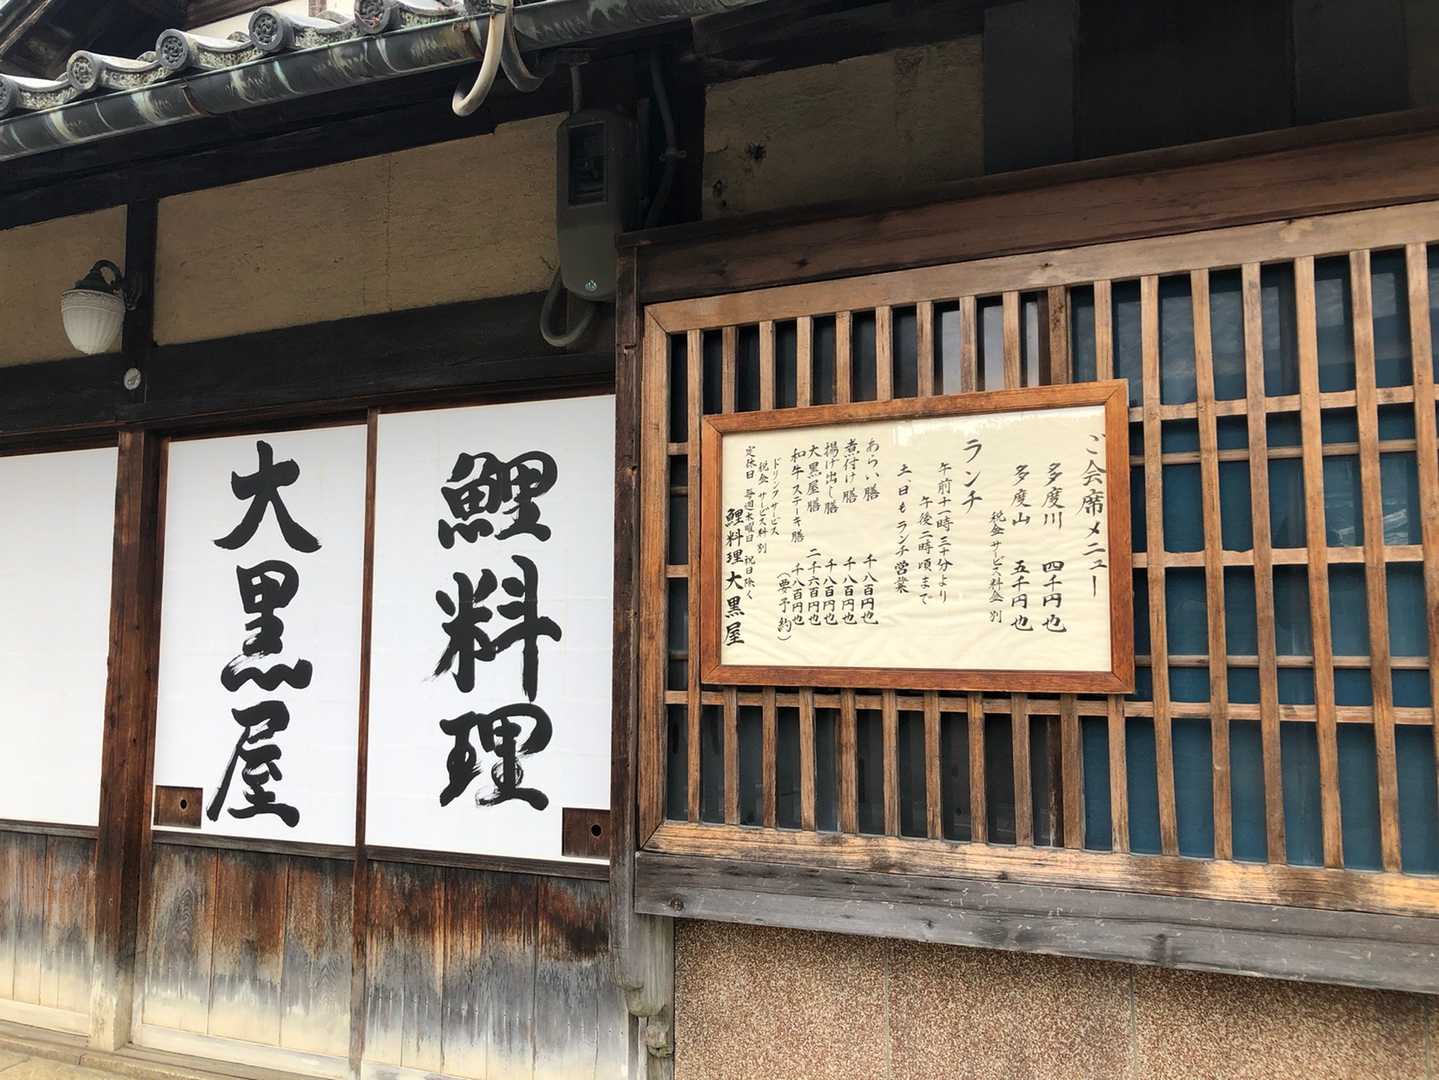 鯉料理
大黒屋
ご会席メニュー
多度川 四千円也
多度山 五千円也
税金サービス料金別
ランチ
午前十一時三十分より
午後二時頃まで
土、日もランチ営業
あらい膳 千八百円也
煮付け膳 千八百円也
揚げ出し膳 千八百円也
大黒屋膳 二千六百円也
和牛ステーキ膳 千八百円也
(要予約)
ドリンクサービス
税金サービス料別
定休日 毎週木曜日 祝日除く
鯉料理 大黒屋